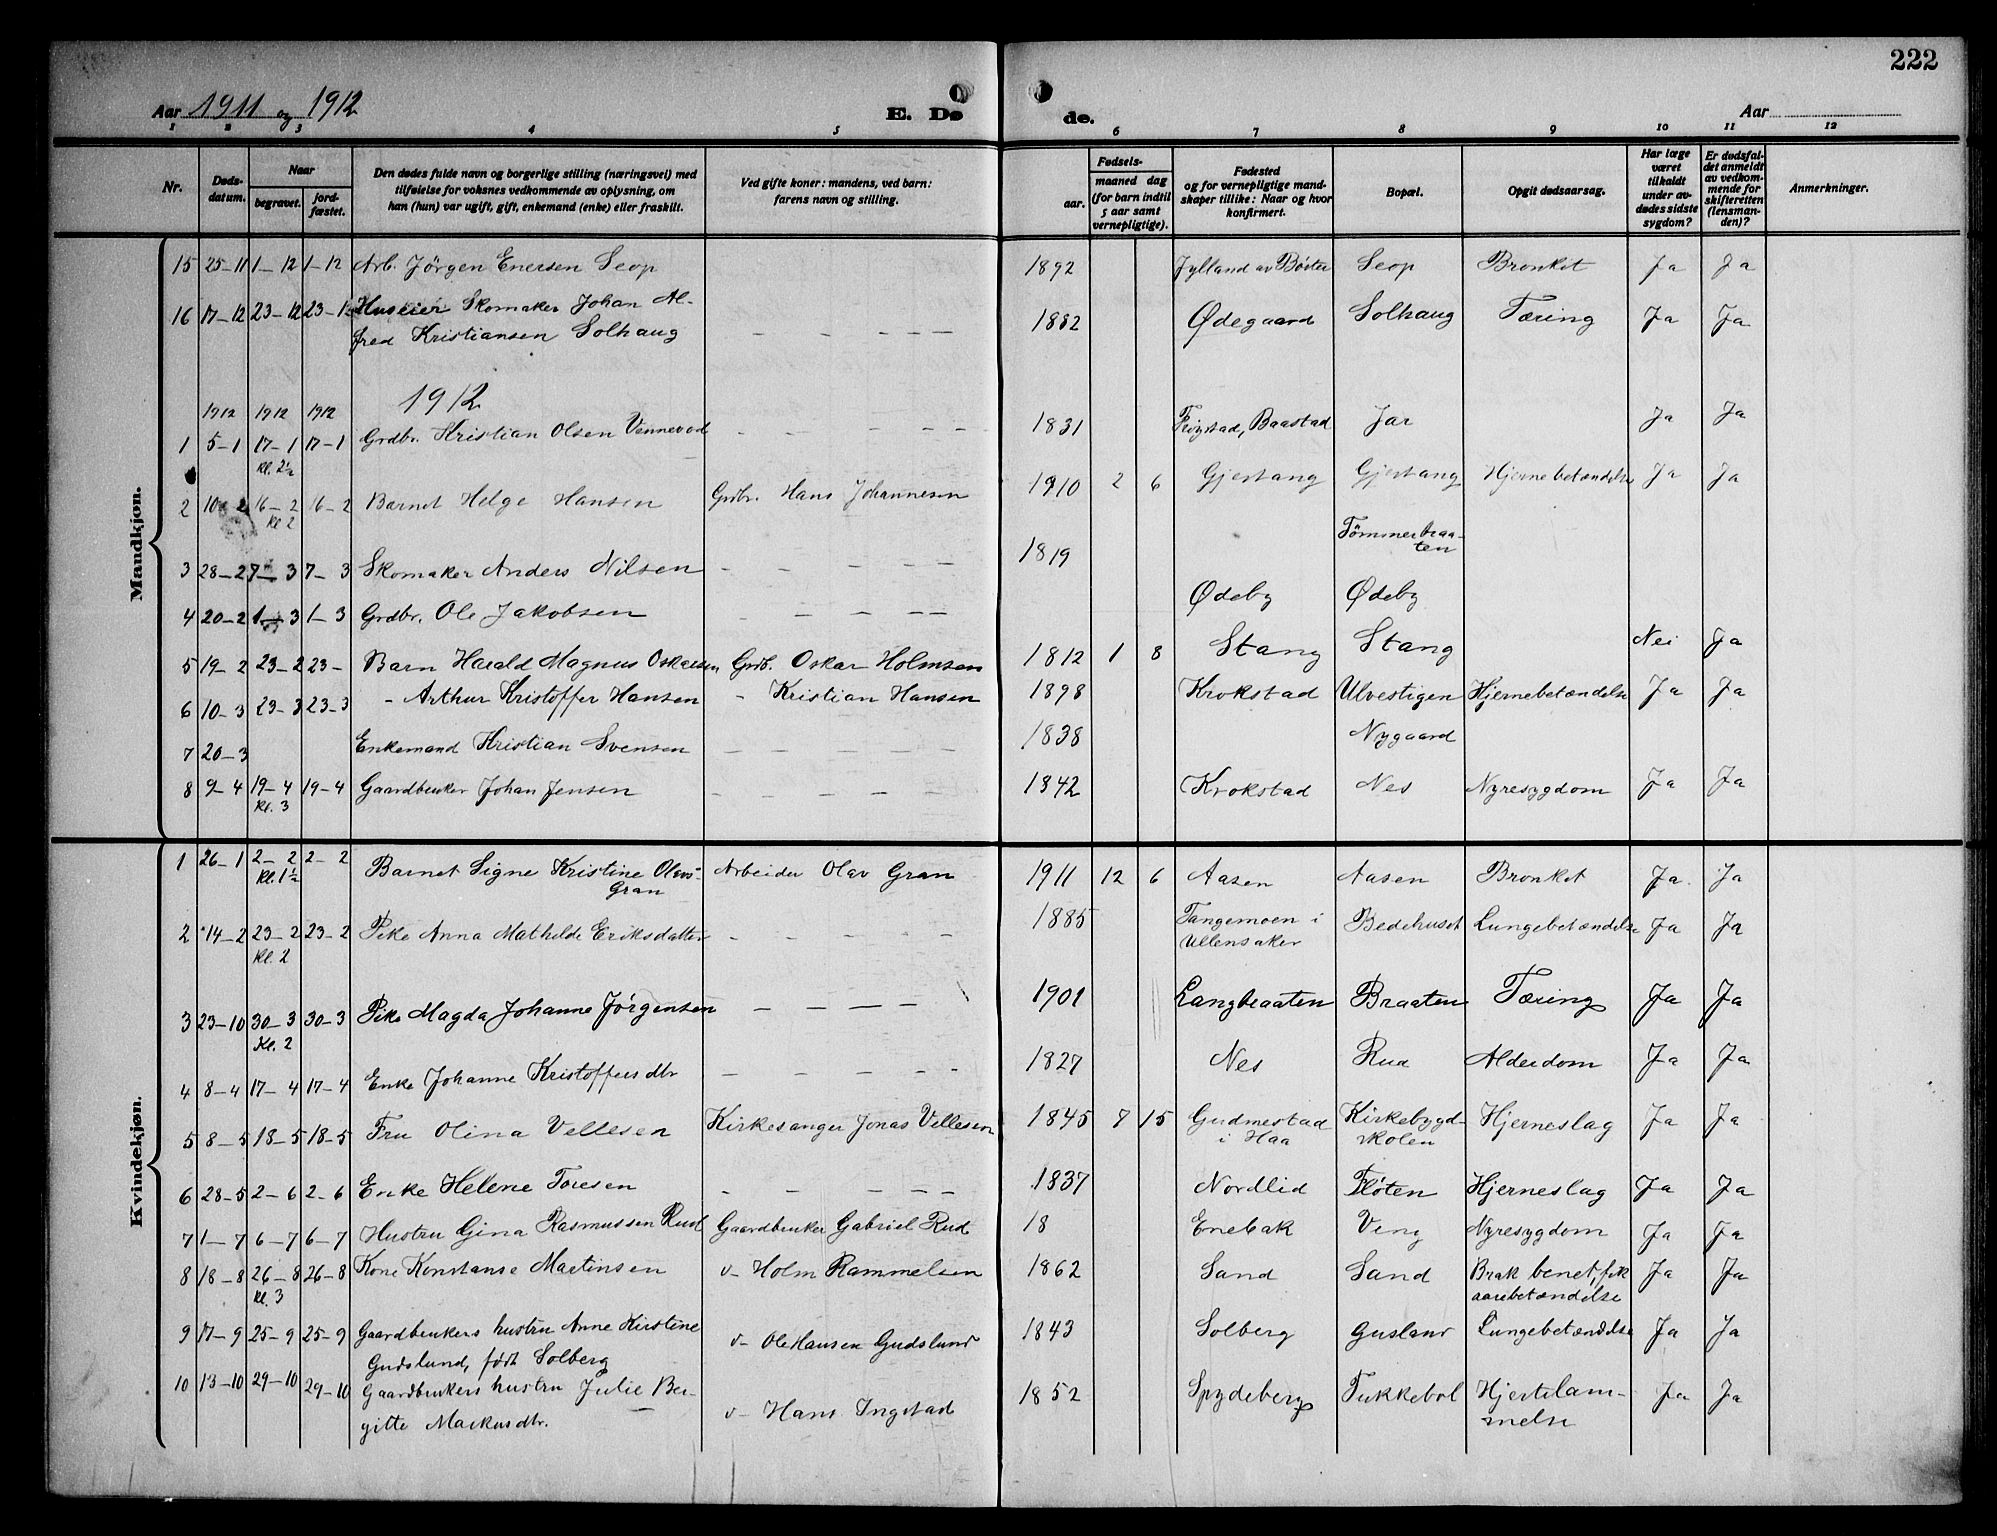 222
Aar 1911 og 1912
E. Dø
de.
Aar
1 2 3 4 5 6 7 8 9 10 11 12
Nr.
Døds-
datum.
Naar
begravet.
jord-
fæstet.
Den dødes fulde navn og borgerlige stilling (næringsvei) med
tilføielse for voksnes vedkommende av oplysning, om
han (hun) var ugift, gift, enkemand (enke) eller fraskilt.
Ved gifte koner: mandens, ved barn:
farens navn og stilling.
Fødsels-
aar.
maaned dag
(for barn indtil
5 aar samt
vernepligtige).
Fødested
og for vernepligtige mand-
skaper tillike: Naar og hvor
konfirmert.
Bopæl.
Opgit dødsaarsag.
Har læge
været
tilkaldt
under av-
dødes sidste
sygdom?
Er dødsfal-
det anmeldt
av vedkom-
mende for
skifteretten
(lensman-
den)?
Anmerkninger.
Mandkjøn.
15 25-11 1-12 1-12 Arb. Jörgen Enersen Seop 1892 Jylland av Böster Seop Bronket Ja Ja
16 17-12 23-12 23-12 Huseier Skomaker Johan Al-
fred Kristiansen Solhaug — — — — — 1882 Ødegaard Solhaug Tæring Ja Ja
1912
1912 1912 1912
1 5-1 17-1 17-1 Grdbr. Kristian Olsen Vennevod — — — — — 1831 Trögstad, Baastad Jar Ja Ja
kl. 2½
2 10-2 16-2 16-2 Barnet Helge Hansen Grdbr. Hans Johannesen 1910 2 6 Gjestang Gjestang Hjernebetændelse Ja Ja
kl 2
3 28-2 7-3 7-3 Skomaker Anders Nilsen — — — — — 1819 Tömmerbraa-
ten
4 20-2 1-3 1-3 Grdbr. Ole Jakobsen — — — — Ødeby Ødeby
5 19-2 23-2 23- Barn Harald Magnus Oskarsen Grdb. Oskar Holmsen 1812 1 8 Stang Stang Nei Ja
6 10-3 23-3 23-3 - Arthur Kristoffer Hansen - Kristian Hansen 1898 Krokstad Ulvestigen Hjernebetændelse Ja Ja
7 20-3 Enkemand Kristian Svensen — — — — — 1838 Nygaard
8 9-4 19-4 19-4 Gaardbruker Johan Jensen — — — — — 1842 Krokstad Nes Nyresygdom Ja Ja
kl. 3
Kvindekjøn.
1 26-1 2-2 2-2 Barnet Signe Kristine Olavs-
Gran Arbeider Olav Gran 1911 12 6 Aasen Aasen Bronket Ja Ja
kl. 1½
2 14-2 23-2 23-2 Pike Anna Mathilde Eriksdatter — — — — — 1885 Tangemoen i
Ullensaker Bedehuset Lungebetændelse Ja Ja
kl. 2
3 23-10 30-3 30-3 Pike Magda Johanne Jörgensen — — — — 1901 Langbraaten Braaten Tæring Ja Ja
Kl. 2
4 8-4 17-4 17-4 Enke Johanne Kristoffersdtr — — — — — 1827 Nes Rud Alderdom Ja Ja
5 8-5 18-5 18-5 Fru Olina Vellesen Kirkesanger Jonas Vellesen 1845 7 15 Gudmestad
i Haa Kirkebygd-
skolen Hjerneslag Ja Ja
6 28-5 2-6 2-6 Enke Helene Toresen — — — — — 1837 Nordlid Flöten Hjerneslag Ja Ja
7 1-7 6-7 6-7 Hustru Gina Rasmussen Rud Gaardbruker Gabriel Rud 18 Enebak Veng Nyresygdom Ja Ja
8 18-8 26-8 26-8 Kone Konstanse Martinsen v- Holm Rammelsen 1862 Sand Sand Brak benet, fik
aarebetændelse Ja Ja
kl. 3
9 17-9 25-9 25-9 Gaardbrukers hustru Anne Kirstine
Gudslund, født Solberg v- Ole Hansen Gudslund 1843 Solberg Gusland Lungebetændelse Ja Ja
10 13-10 29-10 29-10 Gaardbrukers hustru Julie Ber-
gitte Markusdtr. v- Hans Ingstad 1852 Spydeberg Tukkebøl Hjertelam-
melse Ja Ja